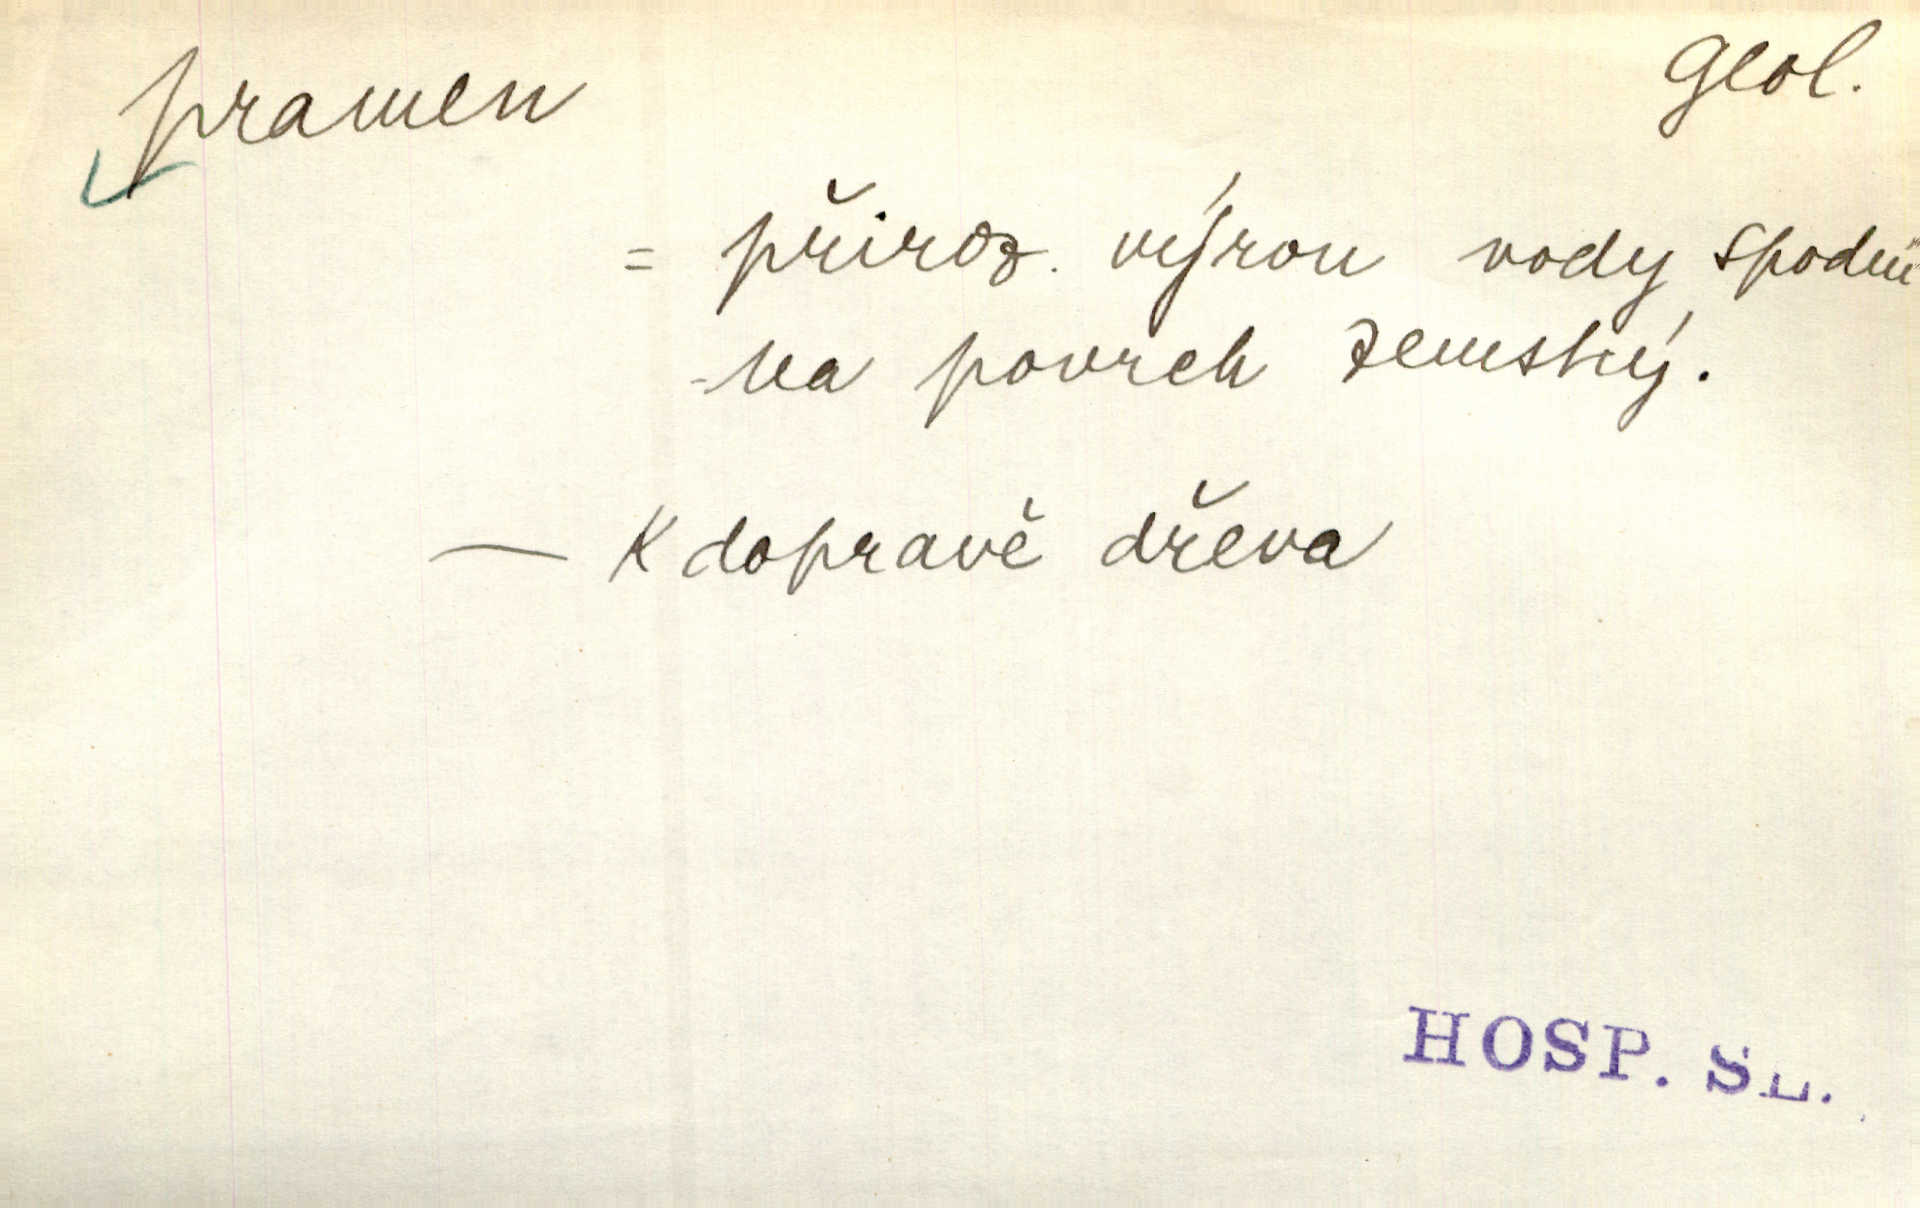 pramen geol.
= přiroz. výron vody spodní
na povrch zemský.
— K dopravě dřeva
HOSP. SL.